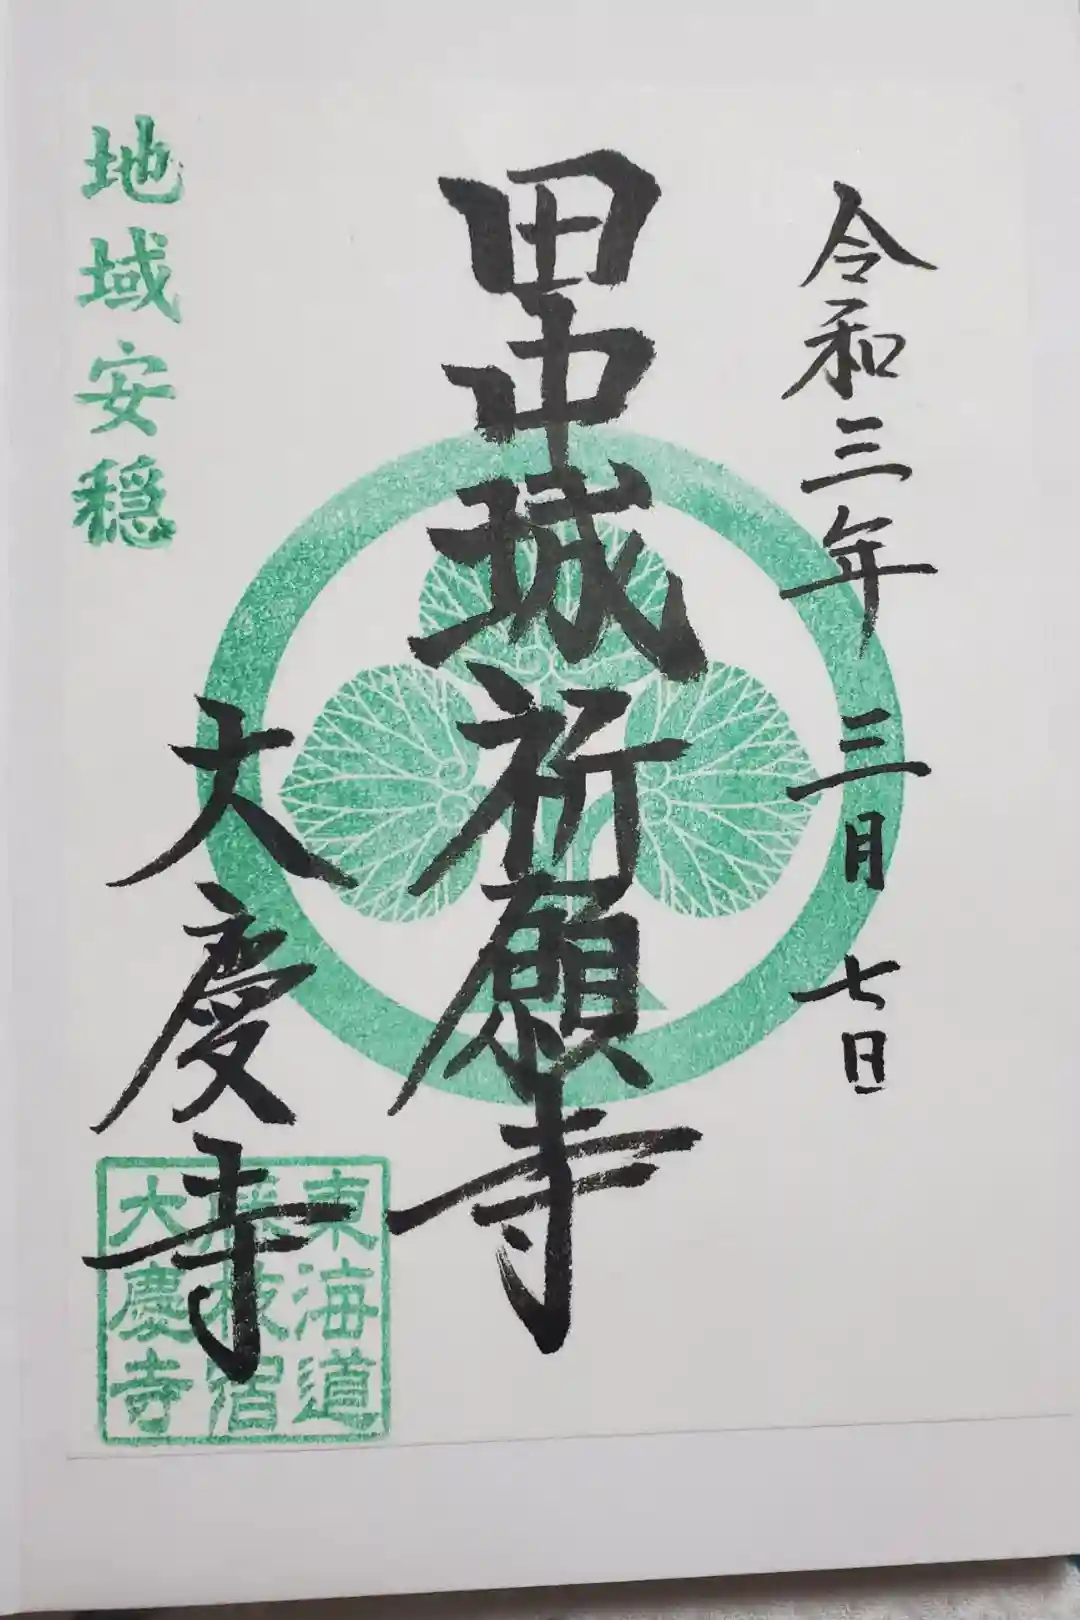 令和三年三月七日
田中城祈願寺
大慶寺
地域安穏
東海道
藤枝宿
大慶寺